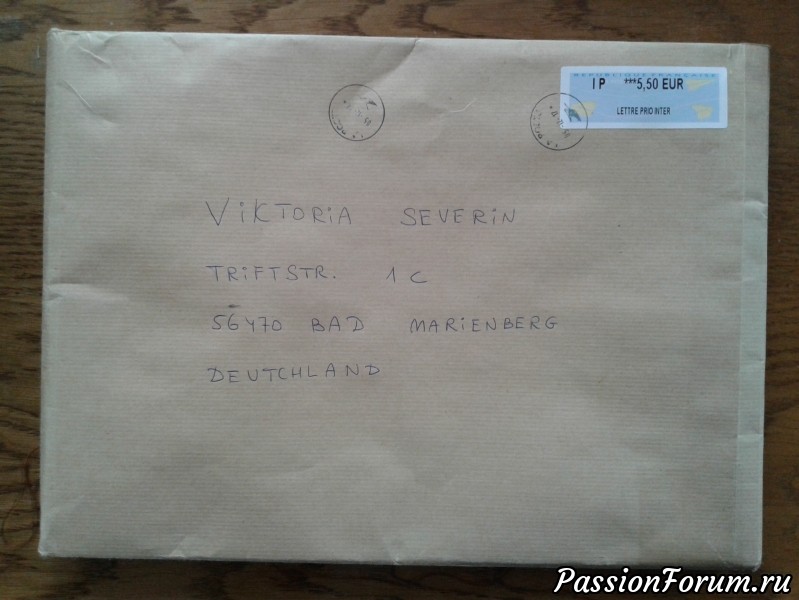 REPUBLIQUE FRANCAISE
IP ***5,50 EUR
LETTRE PRIO INTER
VIKTORIA SEVERIN
TRIFTSTR. 1C
56470 BAD MARIENBERG
DEUTCHLAND
PassionForum.ru